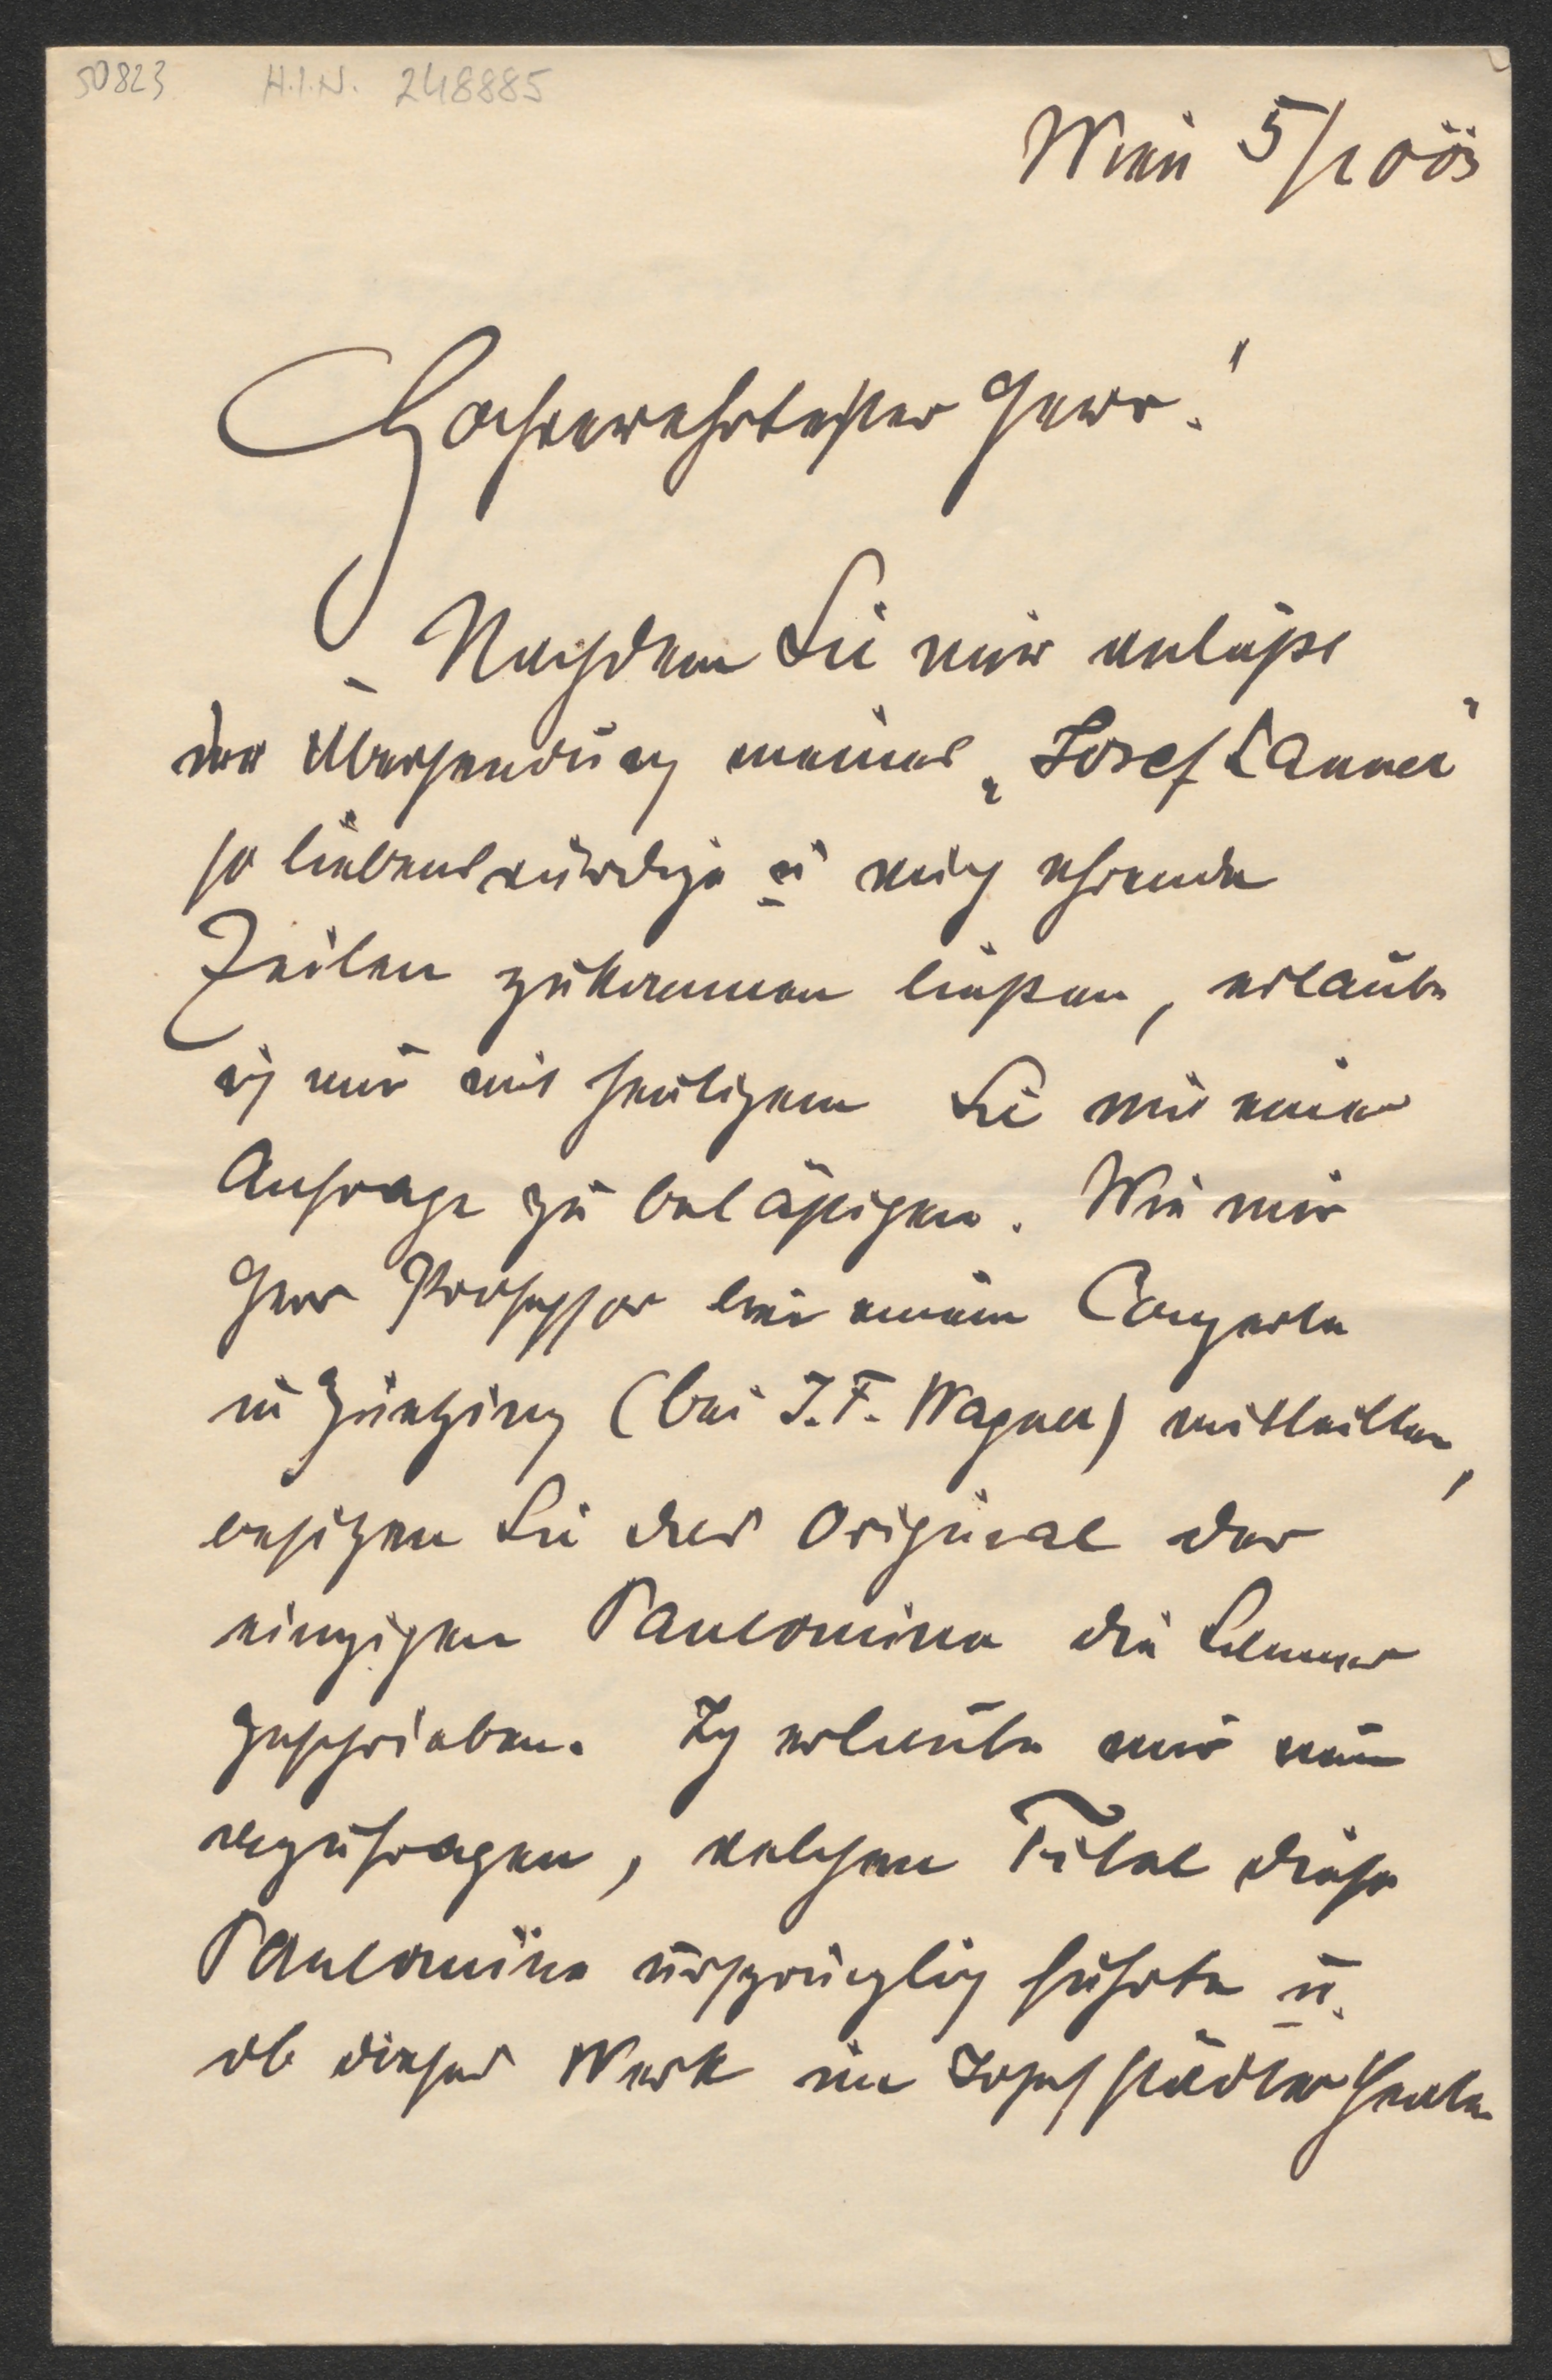 50823 H.I.N. 248885
Wien 5/10 05
Hochverehrtester Herr!
Nachdem Sie mir anläßl
der Übersendung meines „Josef Lanner"
so liebenswürdige u mich ehrende
Zeilen zukommen ließen, erlaube
ich mir mit heutigem Sie mit einer
Anfrage zu belästigen. Wie mir
Herr Professor bei einem Conzerte
in Hietzing (bei J.F. Wagner) mittheilten,
besitzen Sie das Original der
einzigen Pantomime die Lanner
geschrieben. Ich erlaube mir nun
anzufragen, welchen Titel diese
Pantomime ursprünglich führte u.
ob dieses Werk im Josefstädtertheater